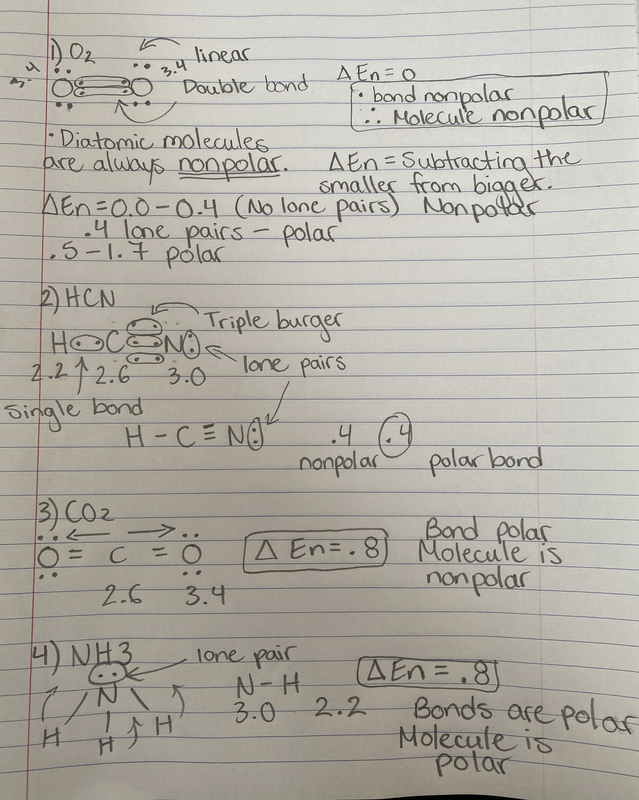 1) O2
linear
3.4
3.4
O O Double bond
ΔEn = 0
· bond nonpolar
∴ Molecule nonpolar
· Diatomic molecules
are always nonpolar.
ΔEn = Subtracting the
smaller from bigger.
ΔEn = 0.0 - 0.4 (No lone pairs) Nonpolar
.4 lone pairs - polar
.5 - 1.7 polar
2) HCN
Triple burger
H C N
lone pairs
2.2 2.6 3.0
Single bond
H - C ≡ N:
.4 .4
nonpolar polar bond
3) CO2
O = C = O
ΔEn = .8
2.6 3.4
Bond polar
Molecule is
nonpolar
4) NH3
lone pair
N
H H H
N - H
3.0 2.2
ΔEn = .8
Bonds are polar
Molecule is
polar